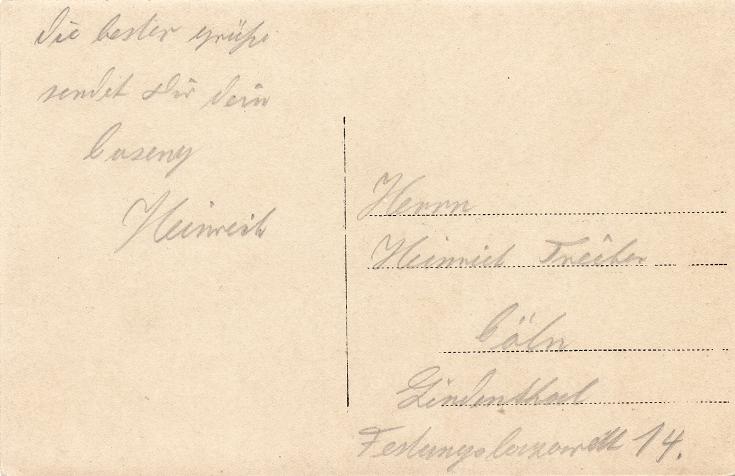 Die besten grüße
sendet Dir dein
Couseng
Heinrich
Herrn
Heinrich Treiber
Cöln
Lindenthal
Festungslazarett 14.